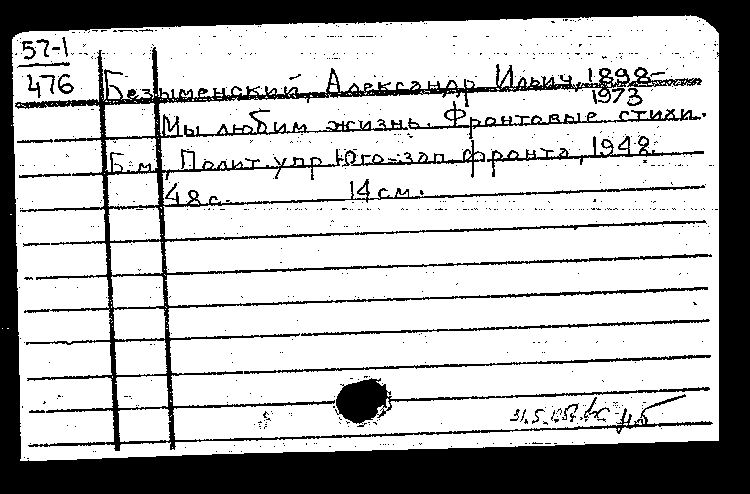 57-1
476
Безыменский, Александр Ильич, 1898-
1973
Мы любим жизнь. Фронтовые стихи.
Б.м., Полит.упр Юго-зап фронта, 1942.
48 с. 14 см.
31.5.